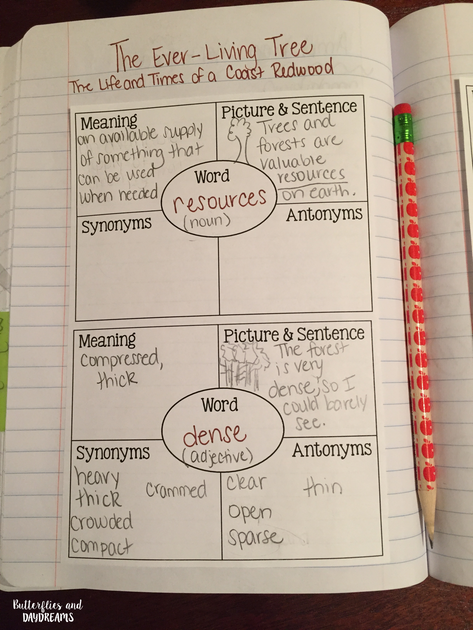 The Ever-Living Tree
The Life and Times of a Coast Redwood
Meaning
an available supply
of something that
can be used
when needed
Picture & Sentence
Trees and
forests are
valuable
resources
on earth.
Word
resources
(noun)
Synonyms
Antonyms
Meaning
compressed,
thick
Picture & Sentence
The forest
is very
dense, so I
could barely
see.
Word
dense
(adjective)
Synonyms
heavy
thick
crammed
crowded
compact
Antonyms
clear
thin
open
sparse
Butterflies and
DAYDREAMS